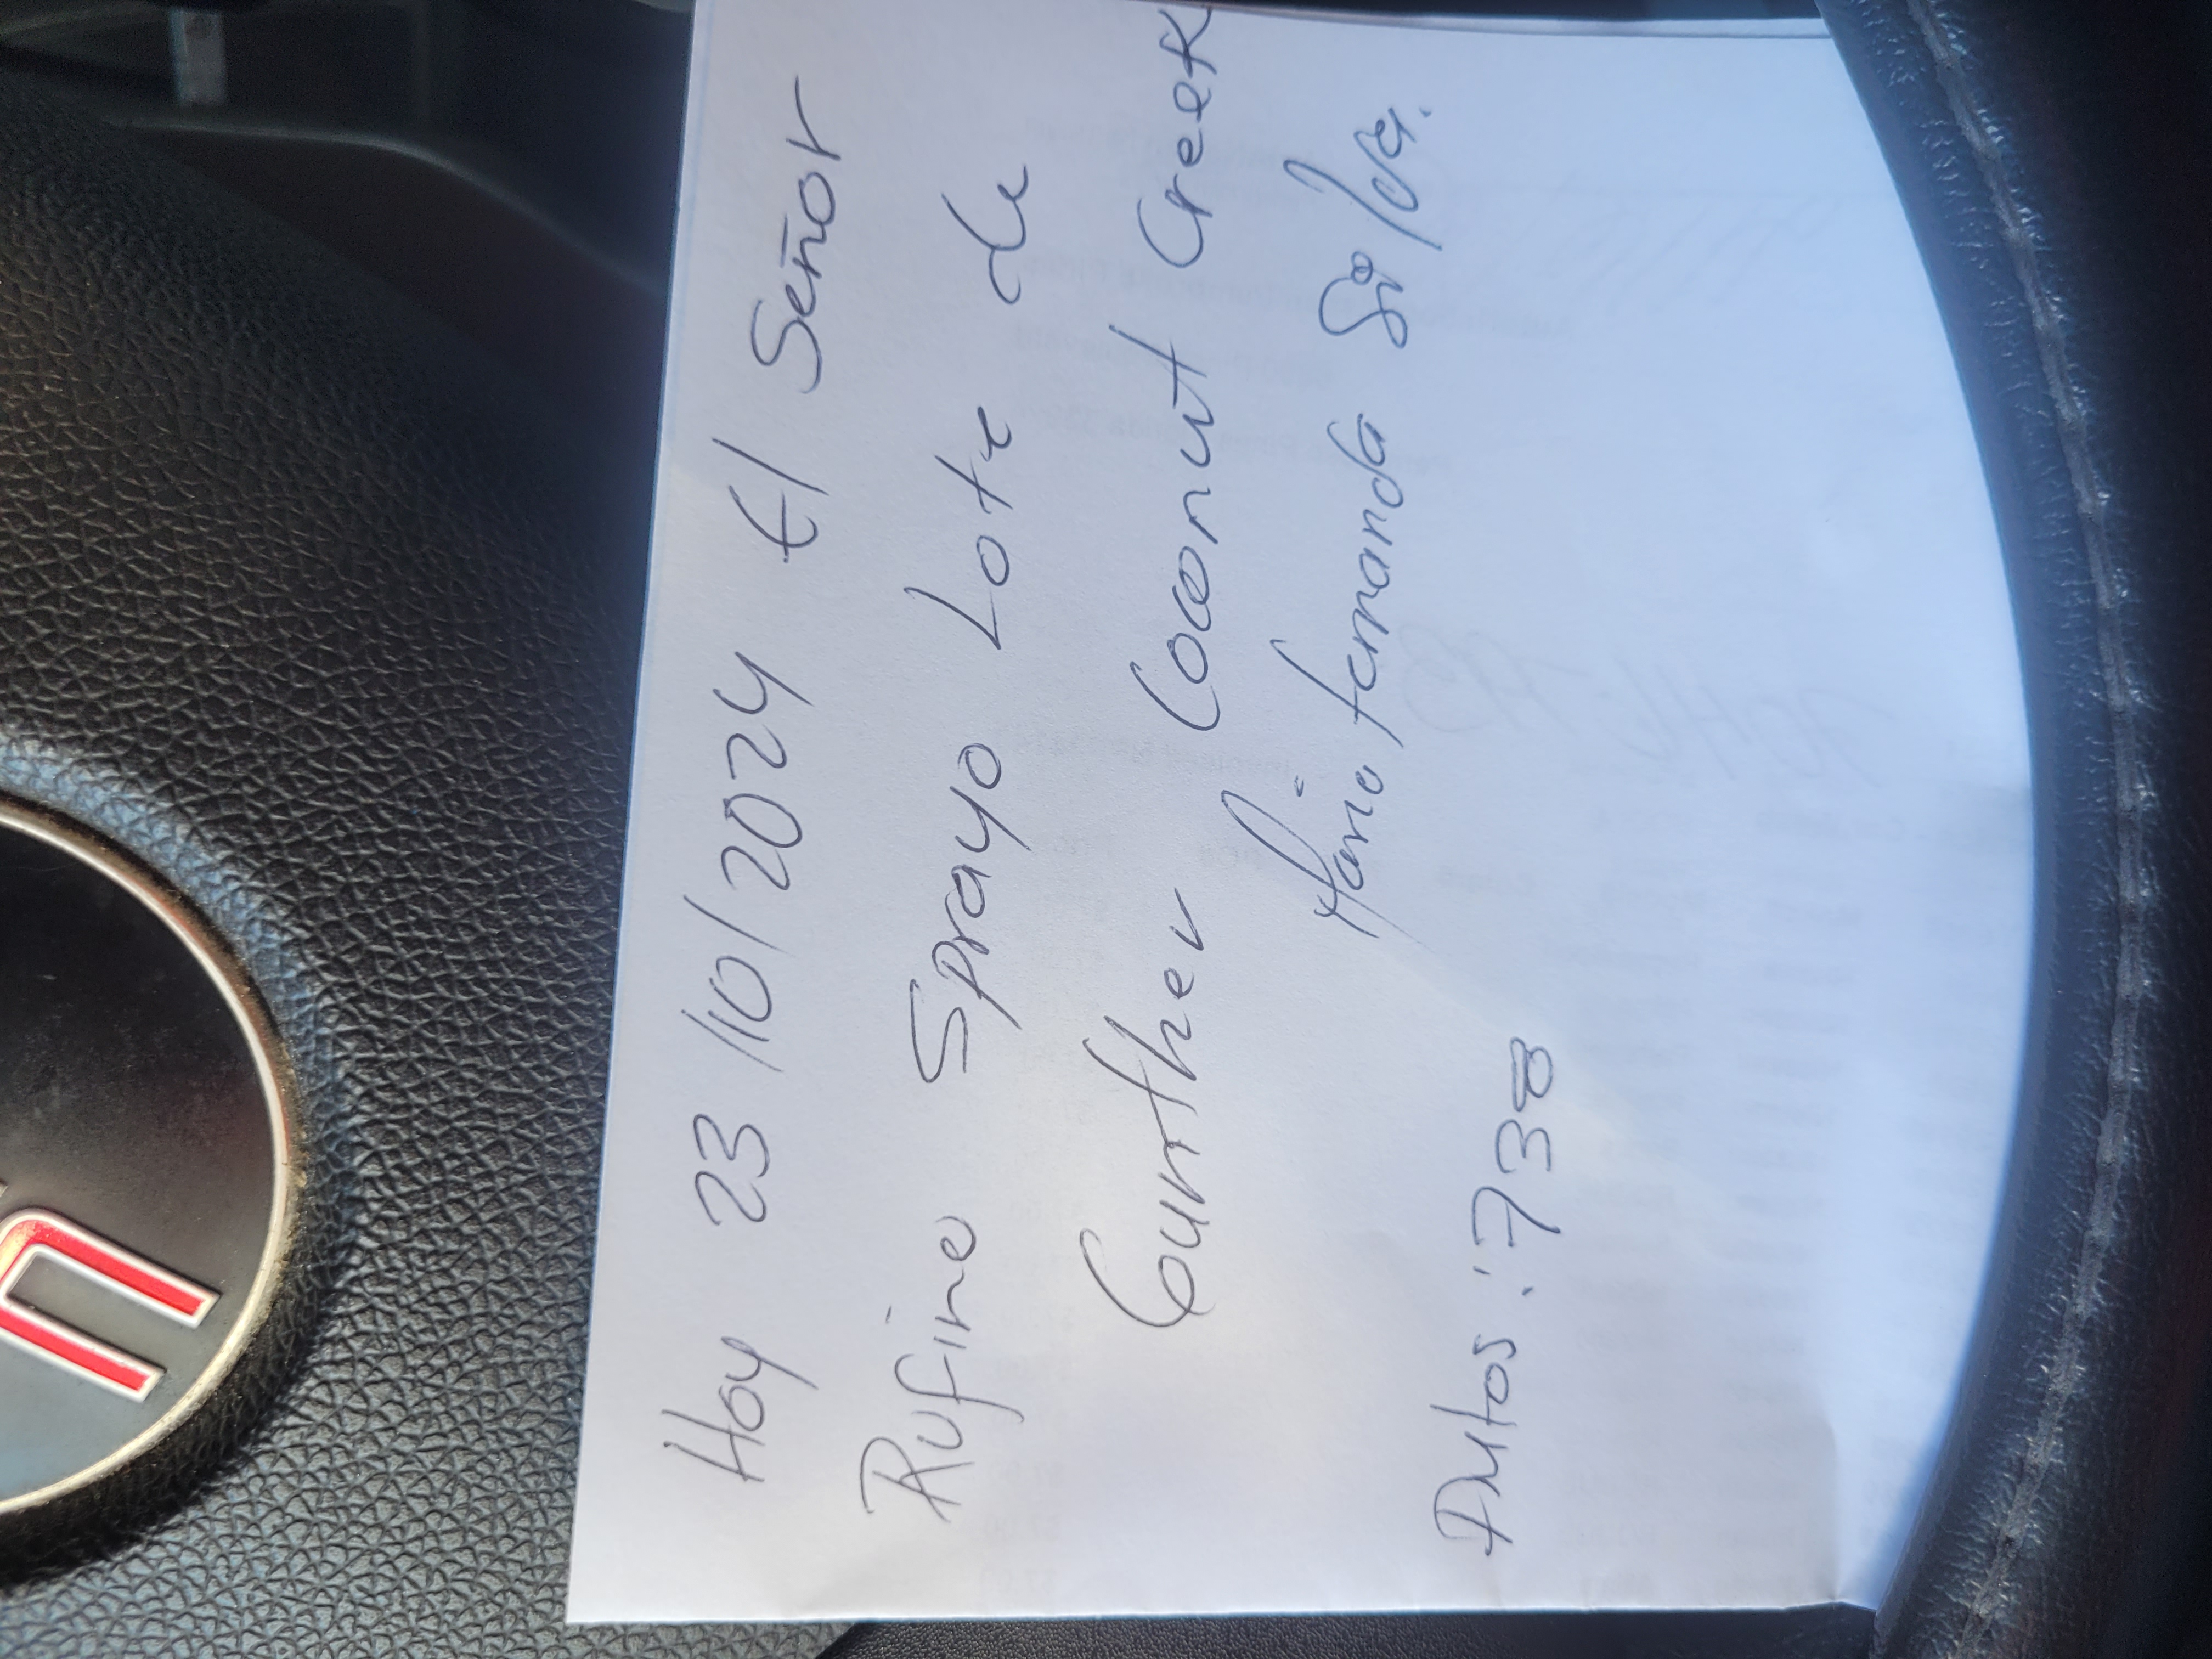 Hoy 23/10/2024 El Señor
Rufino Sprayo Lote de
Gunther Coconut Creek
Maria fernanda Silva.
Autos: 738